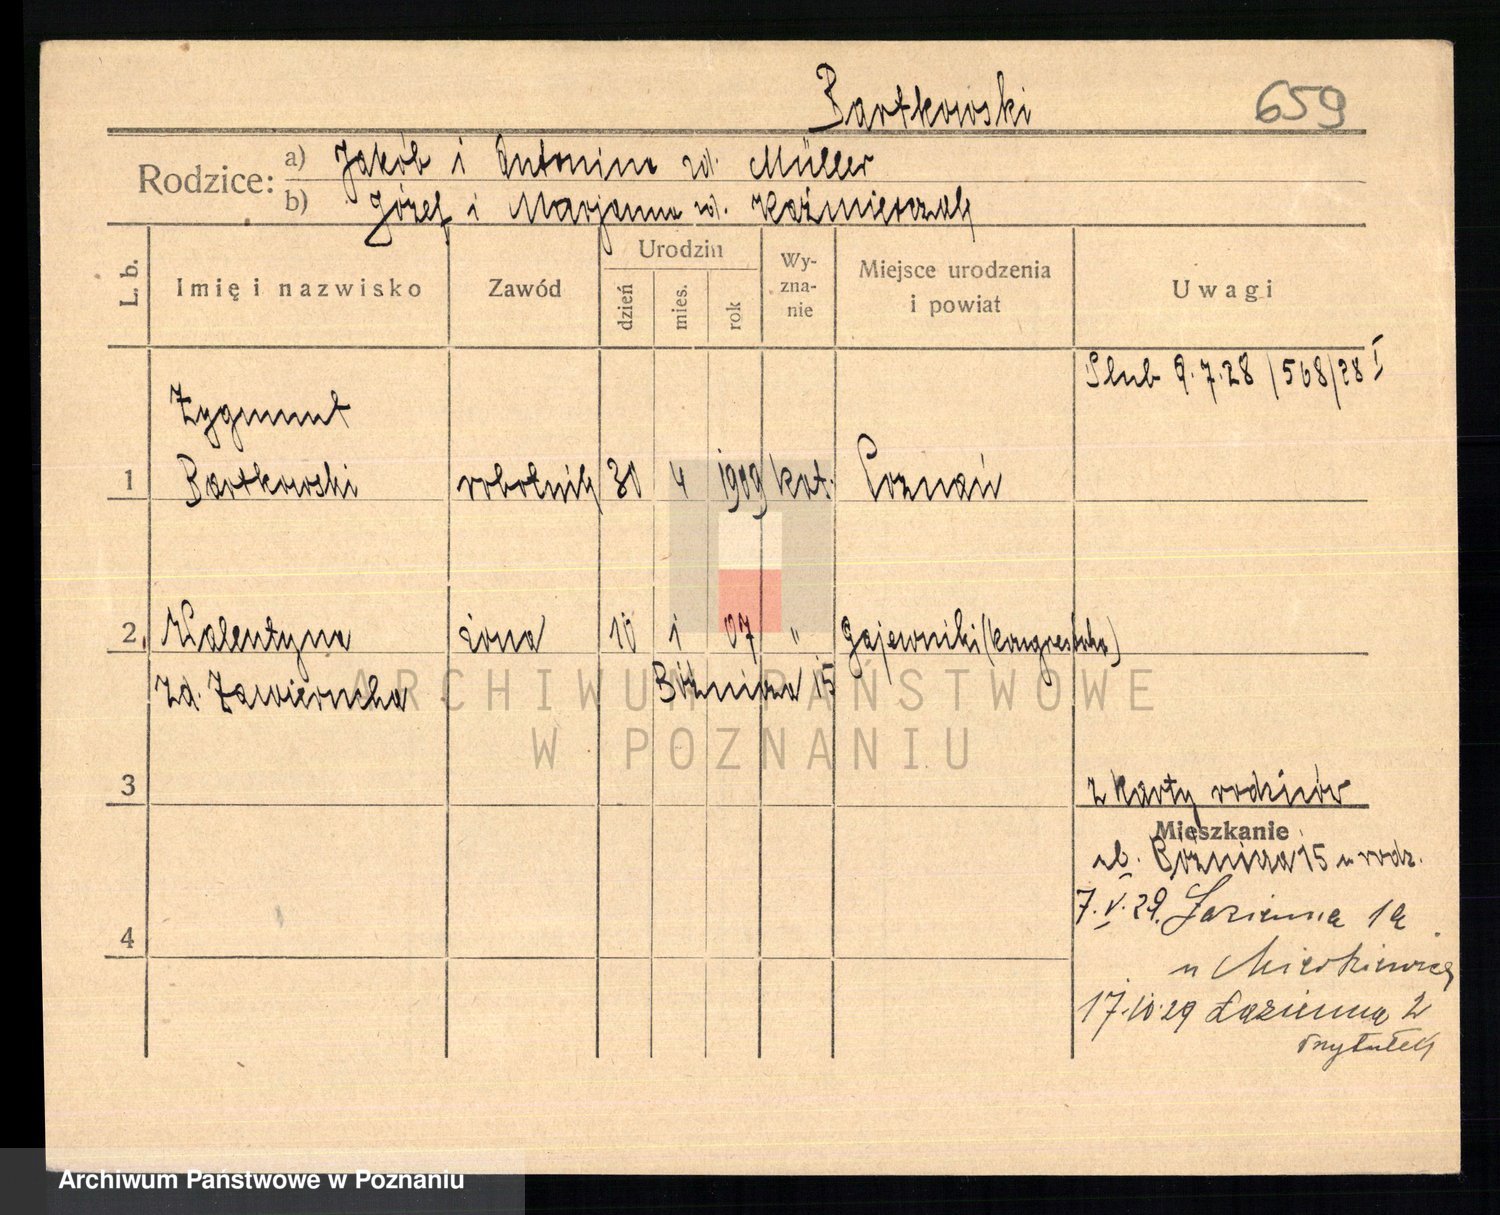 Bartkowski 659
Rodzice: a) Jakób i Antonina zd. Müller
b) Józef i Marjanna zd. Kaźmierczak
L. b. Imię i nazwisko Zawód Urodzin dzień mies. rok Wy-zna-nie Miejsce urodzenia i powiat Uwagi
Ślub 9.7.28 /568/28 I
Zygmunt
1 Bartkowski robotnik 30 4 1909 kat. Poznań
2. Walentyna żona 10 1 07 " Gajewniki (Kongresówka)
zd. Zawierucha Bóżnicza 15
ARCHIWUM PAŃSTWOWE
W POZNANIU
3 z karty rodziców
Mieszkanie
ub. Bóżnicza 15 u rodz.
7.V.29. Łazienna 1a
4
u
17.10.29 Łazienna 2
Przytułek
Archiwum Państwowe w Poznaniu